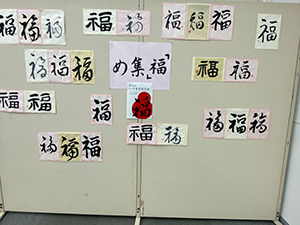 福福福
福福
福福福
福
「福」集め
福福福
福福
福福
福
福
福福
福福福
福福福